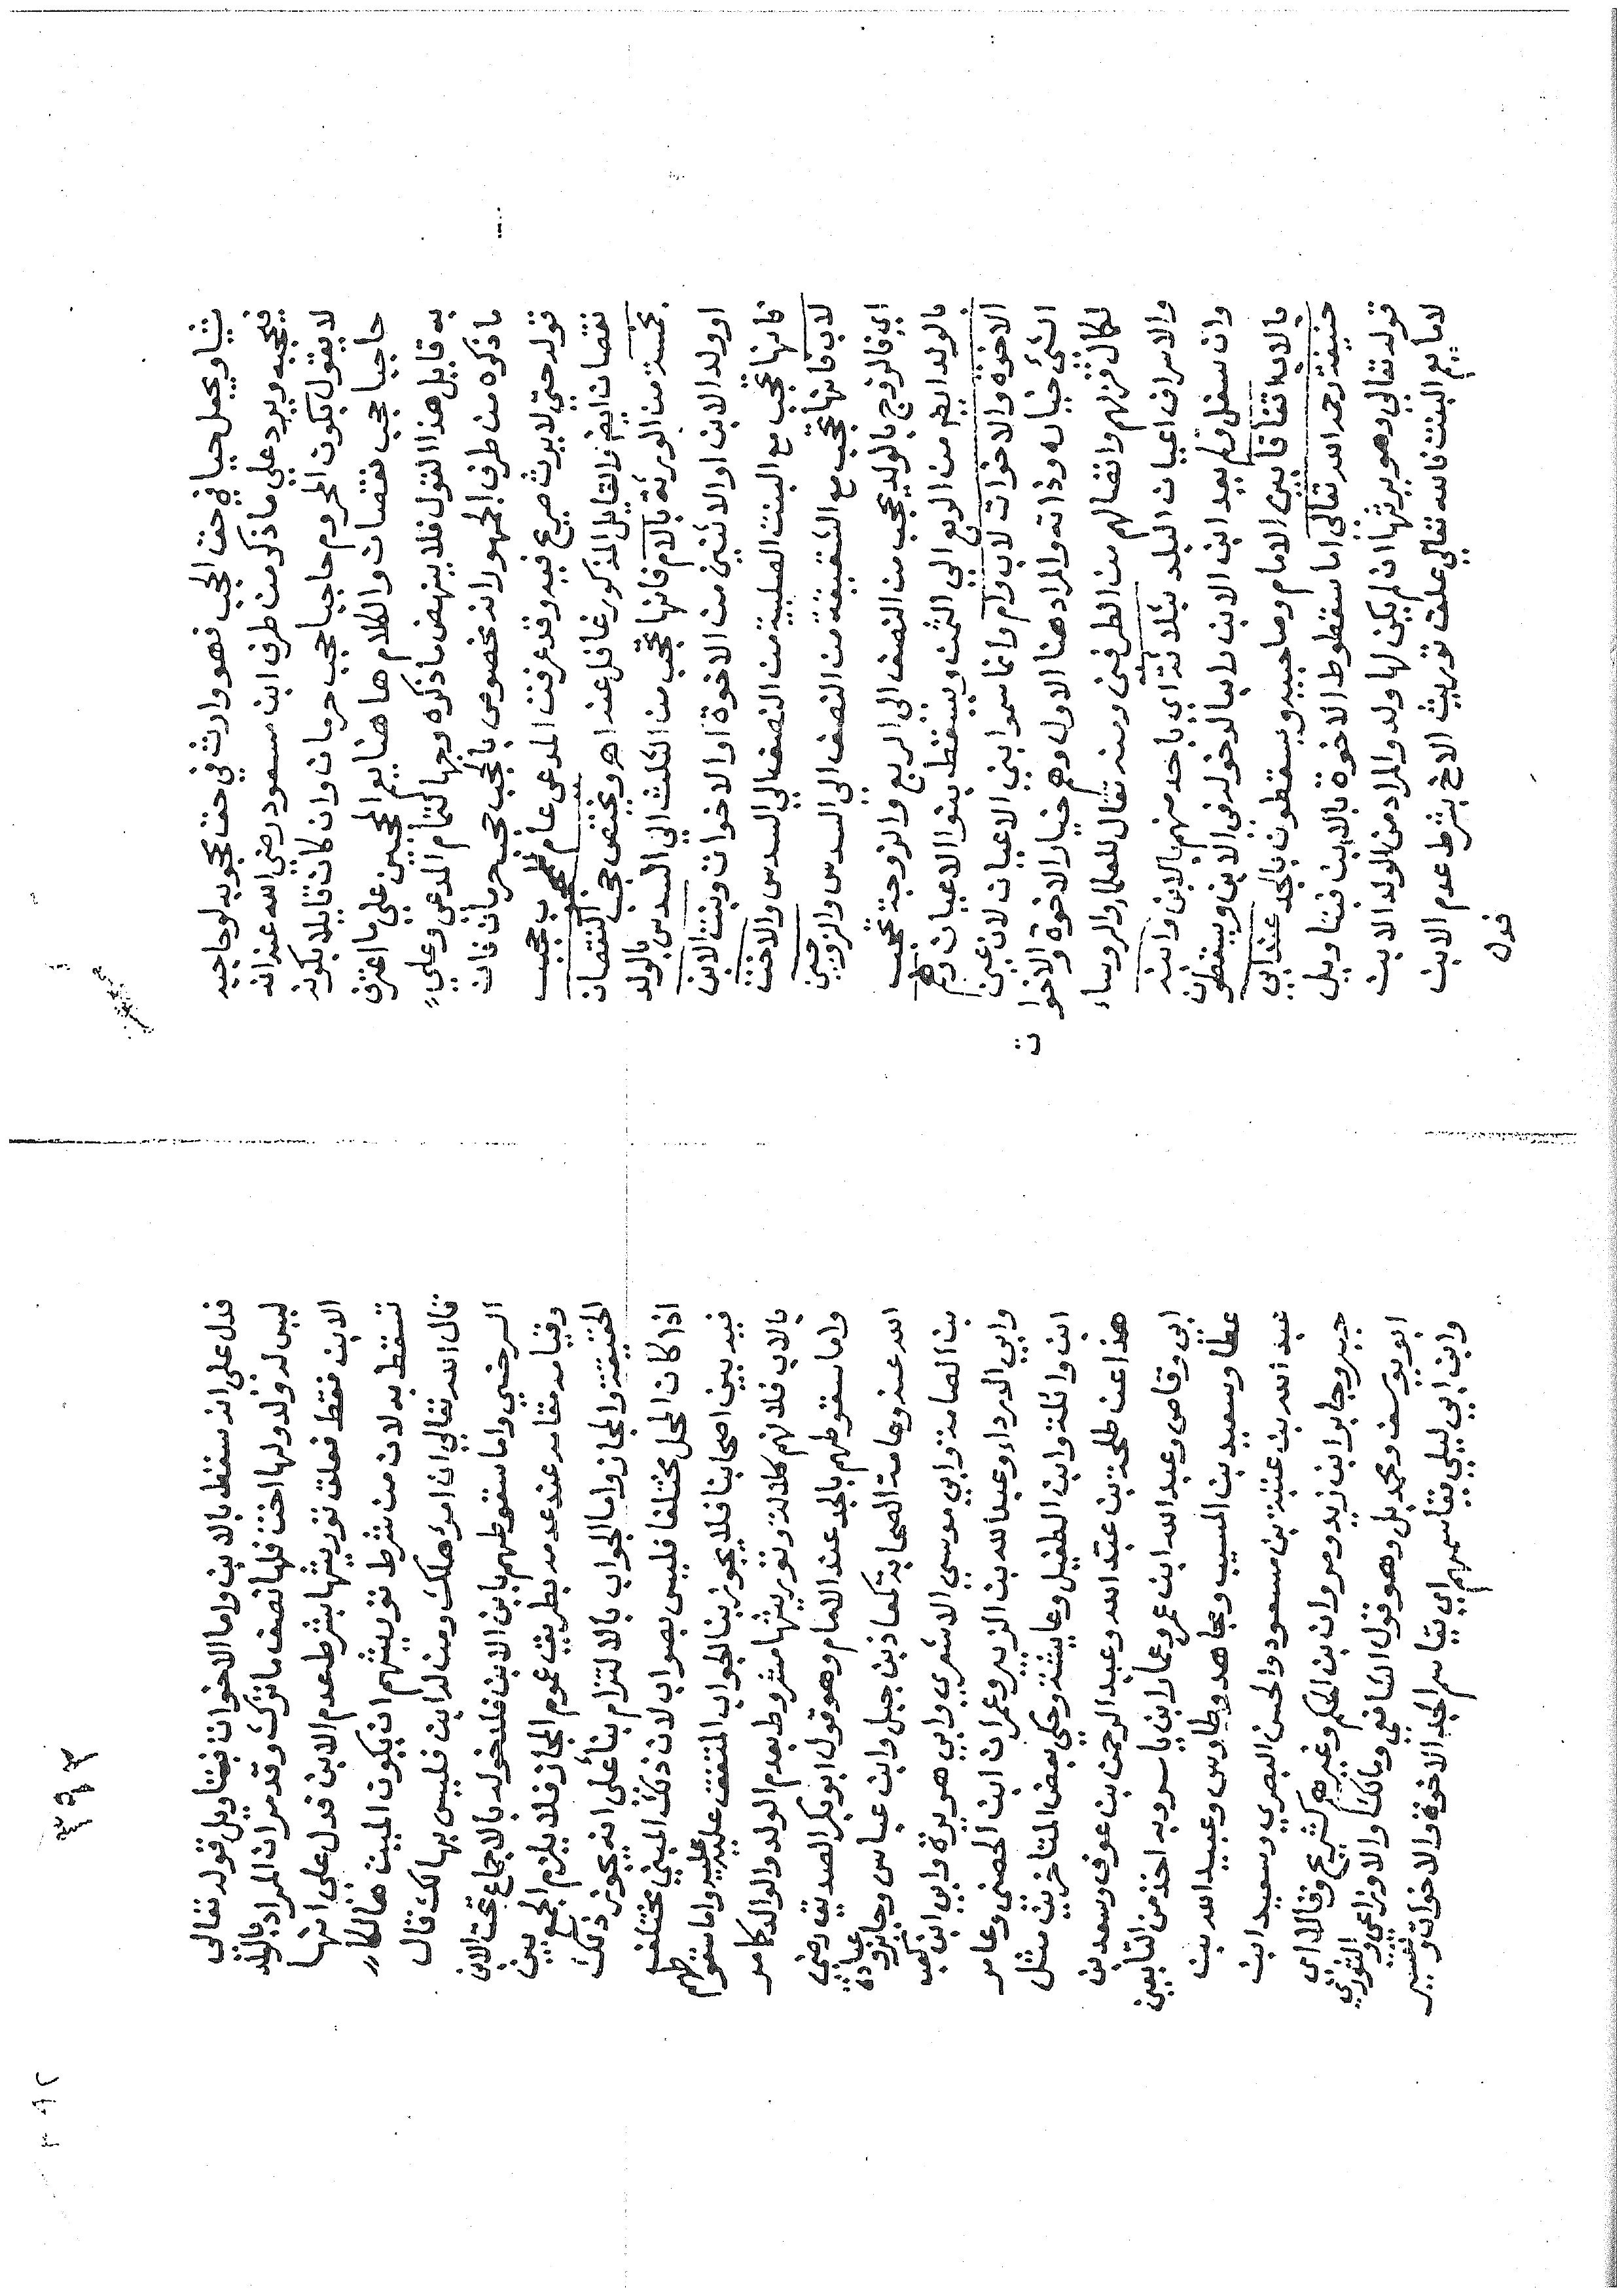 شيا ويجعل حيا في حق الحجب فهو وارث في حق محجوبه لو حاجبه
فيحجبه ويرد على ما ذكر من طرف ابن مسعود رضي الله عنه انه
لا يقول بكون المحروم حاجبا حجب حرمان وان كان قايلا بكونه
حاجبا حجب نقصان والكلام هاهنا يعم الحجبين علي ما اعترف
به قايل هذا القول فلا ينهض ما ذكره وجها لتمام المدعي وعلي
ما ذكره من طرف الجمهور انه مخصوص بالحجب حجب حرمان فان
قوله حتي لا يرث صريح فيه وقد عرفت المدعي عام لحجب
نقصان ايضا والقايل المذكور غافل عنه اهـ ويختص حجب النقصان
بخمسة من الورثة بالام فانها تحجب من الثلث الي السدس بالولد
او ولد الابن او الاثنين من الاخوة او الاخوات وبنت الابن
فانها تحجب مع البنت الصلبية من النصف الي السدس والاخت
لاب فانها تحجب مع الشقيقة من النصف الي السدس والزوجين
اي فالزوج بالولد يحجب من النصف الي الربع والزوجة تحجب
بالولد ايضا من الربع الي الثمن ويسقط بنوا الاعيان وهم
الاخوة والاخوات لاب وام وانما سموا بني الاعيان لان عين
الشئ خياره وذاته والمراد هنا الاول وهم خيار الاخوة والاخوات
لكمال قربهم واتصالهم من الطرفين ومنه تقال للعلماء والروساء
والاسراف اعيان البلد بثلاثة اي باحد منهم بالابن وابنه
وان سفل ولم يعد ابن الابن رابعا لدخوله في الابن ويسقطون
بالاب اتفاقا بين الامام وصاحبيه ويسقطون بالجد عند ابي
حنيفة رحمه الله تعالى اما سقوط الاخوة بالابن فبتاويل
قوله تعالي وهو يرثها ان لم يكن لها ولد والمراد من الولد الابن
لا ما يعم البنت فالله تعالي علق توريث الاخ بشرط عدم الابن
فدل
٣٩٣
فدل على انه سقط بالابن واما الاخوات فبتاويل قوله تعالى
ليس له ولد ولها اخت فلها نصف ما ترك وقد مر ان المراد بالولد
الابن فقط فعلق توريثها بشرط عدم الابن فدل على انها
تسقط به لان من شرط توريثهم ان يكون الميت هالكا
قال الله تعالي ان امرؤ هلك ومن له ابن فليس بهالك قال
السرخسي واما سقوطهم بابن الابن فلدخوله بالاجماع تحت الابن
وقيامه مقامه عند عدمه بطريق عموم المجاز فلا يلزم الجمع بين
الحقيقة والمجاز واما الجواب بالالتزام بناء على انه يجوز ذلك
اذا كان المحل مختلفا فليس بصواب لان ذلك المبني مختلف
فيه بين اصحابنا فلا يجوز بنا الجواب المتفق عليه عليه واما سقوطهم
بالاب فلانهم كلالة وتوريثها مشروط بعدم الولد والوالد كما مر
واما سقوطهم بالجد عند الامام وهو قول ابو بكر الصديق رضي
الله عنه وعامة الصحابة كمعاذ بن جبل وابن عباس وجابر وعبادة
بن الصامت وابي موسي الاشعري وابي هريرة وابي ابن كعب
وابي الدرداء وعبد الله بن الزبير وعمران ابن الحصين وعامر
ابن واثلة وابن الطفيل وعايشة وحكي بعض المتاخرين مثل
هذا عن طلحة بن عبد الله وعبد الرحمن بن عوف وسعد بن
ابي وقاص وعبد الله ابن عمر وعمار ابن ياسر وبه اخذ من التابعين
عطا وسعيد بن المسيب ومجاهد وطاوس وعبيد الله بن
عبد الله بن عتبة بن مسعود والحسن البصري وسعيد ابن
جبير وجابر ابن زيد ومروان بن الحكم وغيرهم كشريح وقالا اي
ابو يوسف ومحمد بل وهو قول الشافعي ومالك والاوزاعي والثوري
وابن ابي ليلي يقاسمهم اي يقاسم الجد الاخوة والاخوات وتفسير